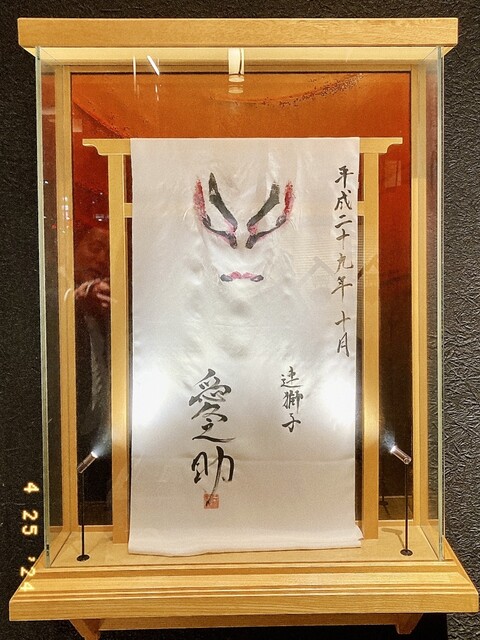 平成二十九年 十月
連獅子
愛之助
4 25 '24